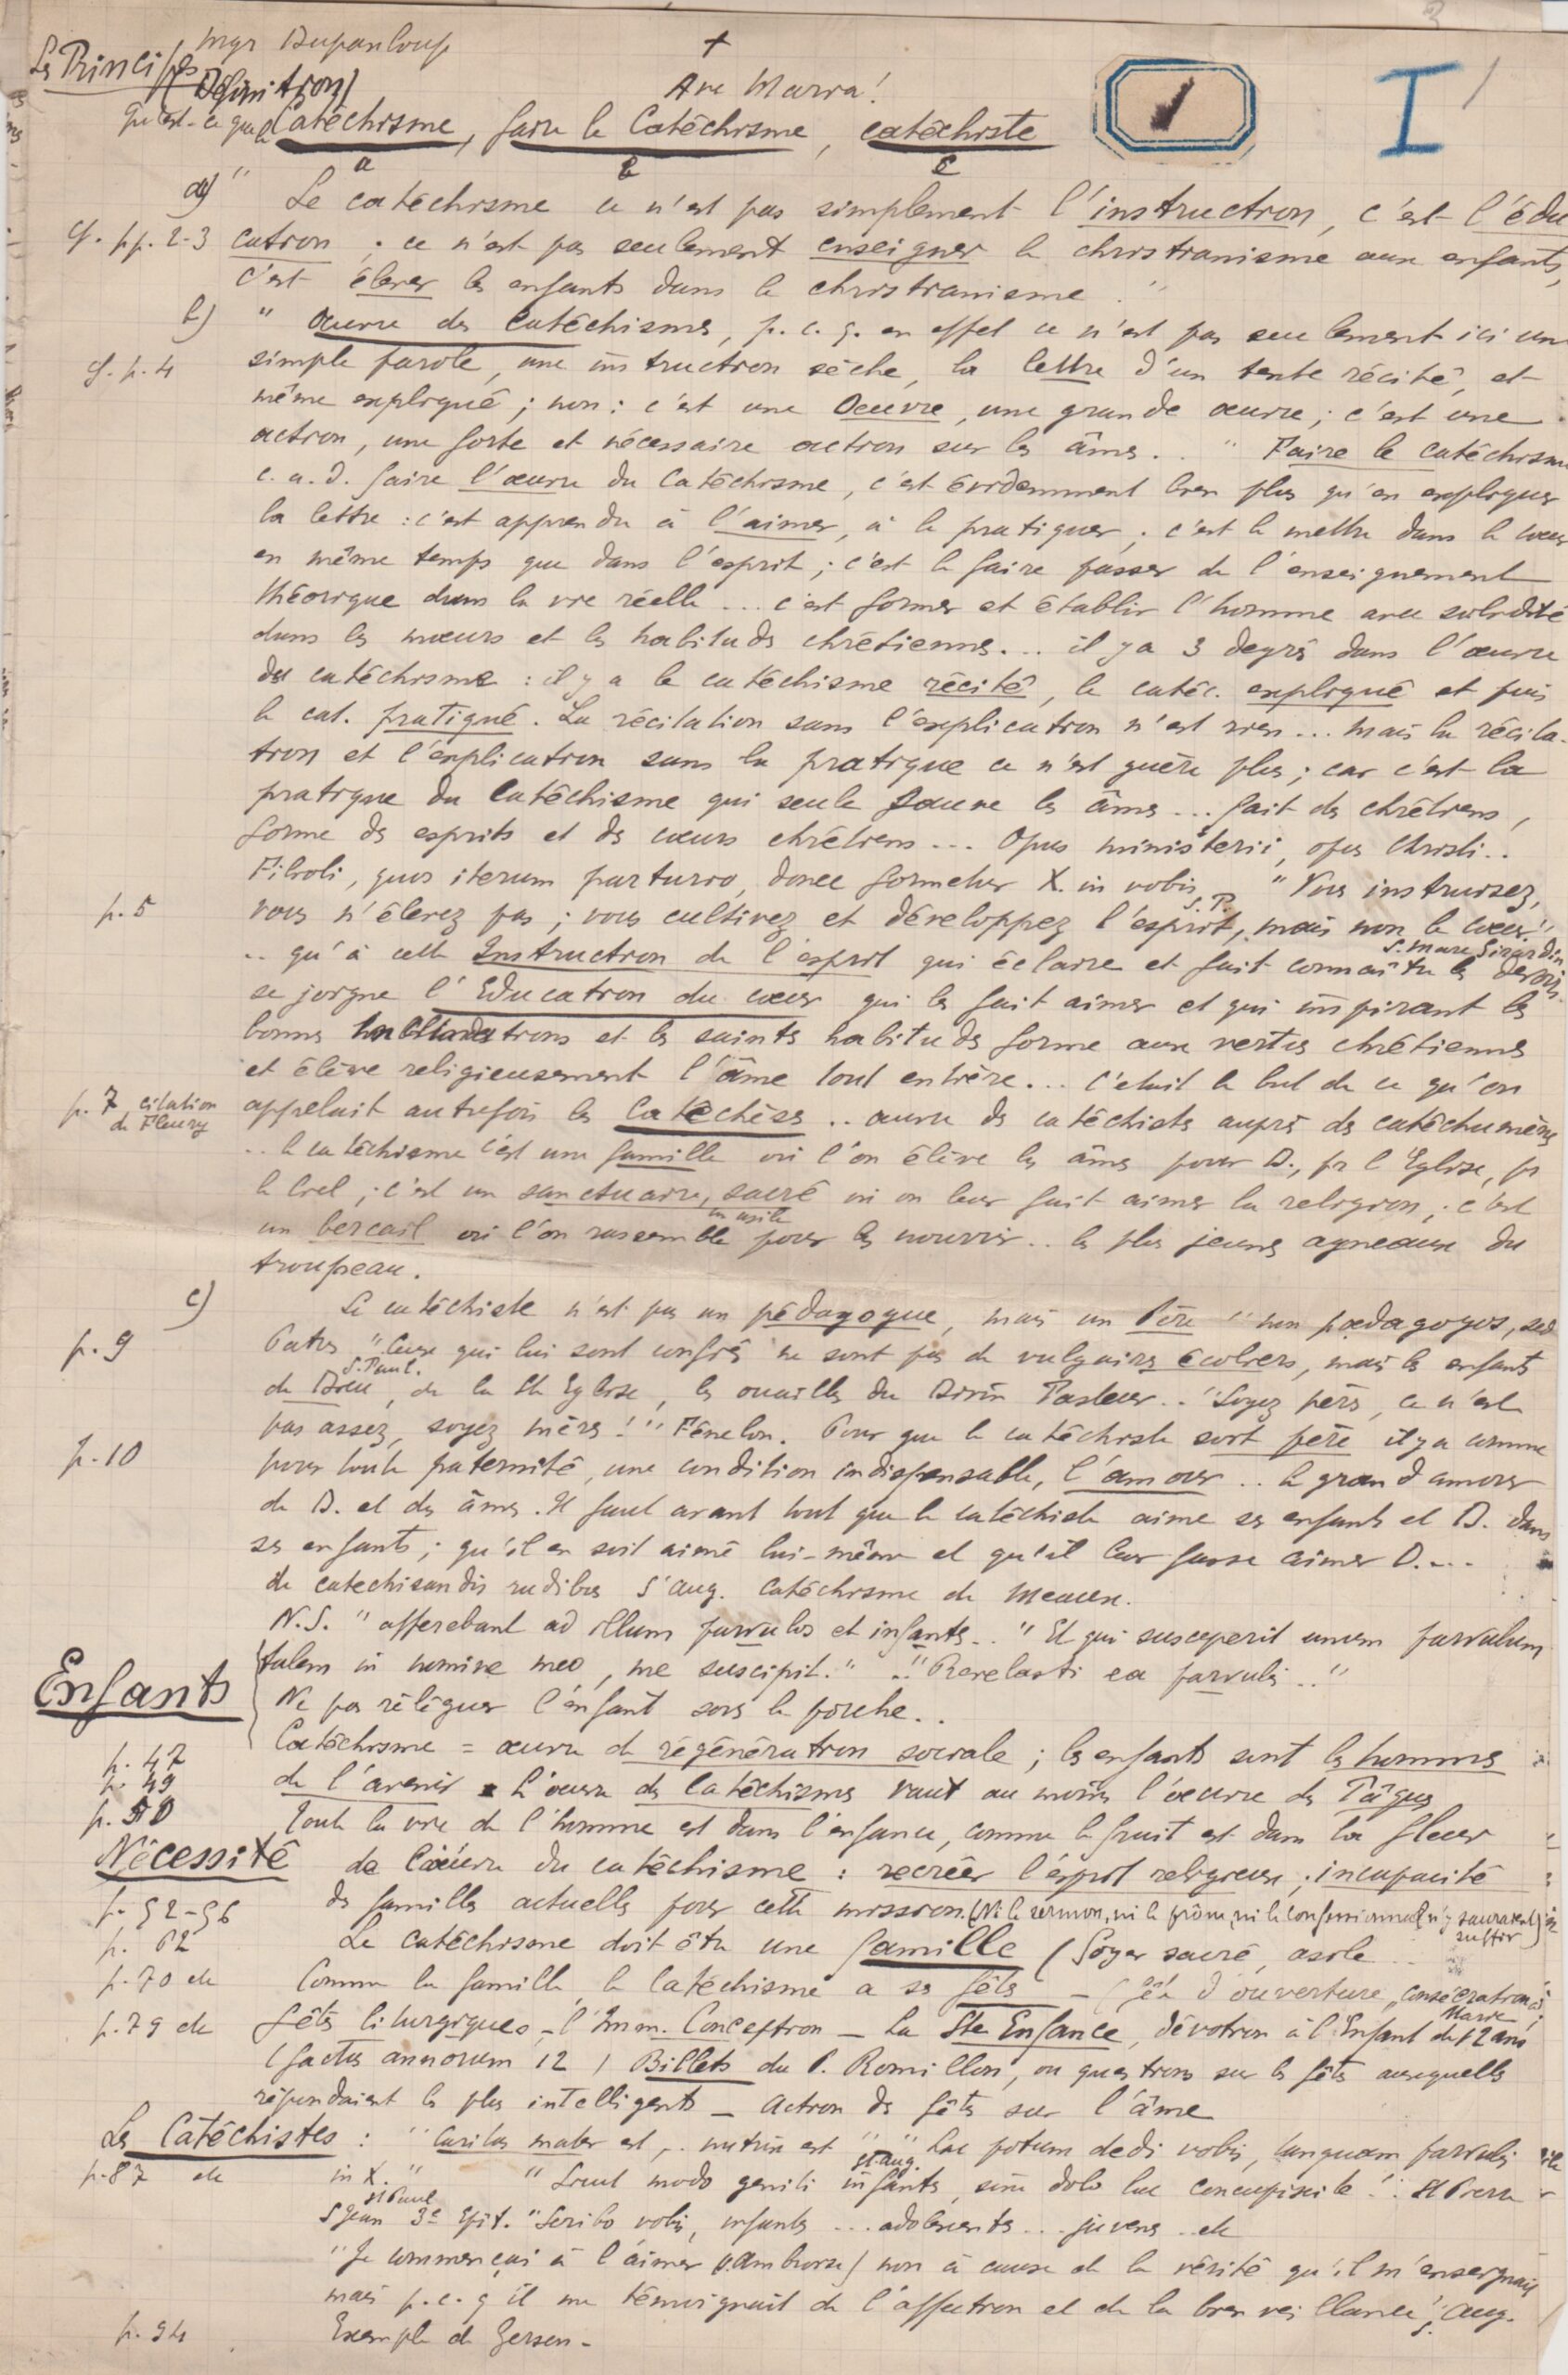 Mgr Dupanloup
+
Les Principes
(Définition)
Ave Maria!
1
I
Qu'est-ce que le Catéchisme, faire le Catéchisme, catéchiste
a b c
a) " Le catéchisme ce n'est pas simplement l'instruction, c'est l'édu
cf. pp. 2-3 cation ; ce n'est pas seulement enseigner le christianisme aux enfants,
c'est élever les enfants dans le christianisme. "
b) " Œuvre des Catéchismes, p. c. q. en effet ce n'est pas seulement ici une
cf. p. 4 simple parole, une instruction sèche, la lettre d'un texte récité, et
même expliqué ; non : c'est une Oeuvre, une grande œuvre ; c'est une
action, une forte et nécessaire action sur les âmes.. " Faire le catéchisme
c. a. d. faire l'œuvre du Catéchisme, c'est évidemment bien plus qu'en expliquer
la lettre : c'est apprendre à l'aimer, à le pratiquer ; c'est le mettre dans le cœur
en même temps que dans l'esprit ; c'est le faire passer de l'enseignement
théorique dans la vie réelle ... c'est former et établir l'homme avec solidité
dans les mœurs et les habitudes chrétiennes... il y a 3 degrés dans l'œuvre
du catéchisme : il y a le catéchisme récité, le catéc. expliqué et puis
le cat. pratiqué. La récitation sans l'explication n'est rien ... mais la récita-
tion et l'explication sans la pratique ce n'est guère plus ; car c'est la
pratique du Catéchisme qui seule sauve les âmes ... fait des chrétiens,
forme des esprits et des cœurs chrétiens ... Opus ministerii, opus Christi..
Filioli, quos iterum parturio, donec formetur X. in vobis. S. P. " Vous instruisez,
p. 5 vous n'élevez pas ; vous cultivez et développez l'esprit, mais non le cœur " S. Marc Girardin
.. qu'à cette Instruction de l'esprit qui éclaire et fait connaître les devoirs
se joigne l'Education du cœur qui les fait aimer et qui inspirant les
bonnes et les saintes habitudes forme aux vertus chrétiennes
et élève religieusement l'âme tout entière... C'était le but de ce qu'on
p. 7 citation de Fleury appelait autrefois les Catéchèses .. œuvre des catéchistes auprès des catéchumènes
.. le catéchisme c'est une famille où l'on élève les âmes pour D., pr l'Eglise, pr
le Ciel ; c'est un sanctuaire, sacré où on leur fait aimer la religion ; c'est
un asile
un bercail où l'on rassemble pour les nourrir .. les plus jeunes agneaux du
troupeau.
c) Le catéchiste n'est pas un pédagogue, mais un Père " non pædagogos, sed
p. 9 Patres " S. Paul. Ceux qui lui sont confiés ne sont pas de vulgaires écoliers, mais les enfants
de Dieu, de la Ste Eglise, les ouailles du Divin Pasteur .. " Soyez pères, ce n'est
pas assez, soyez mères ! " Fénelon. Pour que le catéchiste soit père il y a comme
p. 10 pour toute paternité, une condition indispensable, l'amour .. le grand amour
de D. et des âmes. Il faut avant tout que le catéchiste aime ses enfants et D. dans
ses enfants ; qu'il en soit aimé lui-même et qu'il leur fasse aimer D. ...
de catechisandis rudibus S. Aug. Catéchisme de Meaux.
N. S. " afferebant ad illum parvulos et infantes .. " Et qui susceperit unum parvulum
talem in nomine meo, me suscipit. " .. " Revelasti ea parvulis .. "
Enfants
Ne pas reléguer l'enfant sous le porche..
p. 47 Catéchisme = œuvre de régénération sociale ; les enfants sont les hommes
p. 49 de l'avenir. L'œuvre des Catéchismes vaut au moins l'œuvre de Pâques
p. 50 Toute la vie de l'homme est dans l'enfance, comme le fruit est dans la fleur
Nécessité de l'œuvre du catéchisme : recréer l'esprit religieux ; incapacité
p. 52-56 des familles actuelles pour cette mission. (Ni le sermon, ni le prône, ni le confessionnal n'y sauraient suffir)
p. 62 Le catéchisme doit être une famille (foyer sacré, asile ..
p. 70 etc Comme la famille, le Catéchisme a ses fêtes - (fête d'ouverture, consécration à Marie,
p. 79 etc fêtes liturgiques, - l'Imm. Conception - La Ste Enfance, dévotion à l'Enfant de 12 ans
(factus annorum 12) Billets du P. Romillon, ou questions sur les fêtes auxquelles
répondaient les plus intelligents - Action des fêtes sur l'âme
Les Catéchistes : " Caritas mater est, .. nutrix est " St Aug. " Lac potum dedi vobis, tanquam parvulis
p. 87 etc in X. " St Paul " Sicut modo geniti infantes, sine dolo lac concupiscite " St Pierre
S Jean 3e Epit. " Scribo vobis, infantes ... adolescentes ... juvenes .. etc
" Je commençai à l'aimer (S. Ambroise) non à cause de la vérité qu'il m'enseignait
mais p. c. q il me témoignait de l'affection et de la bienveillance " S. Aug.
p. 94 Exemple de Gerson -